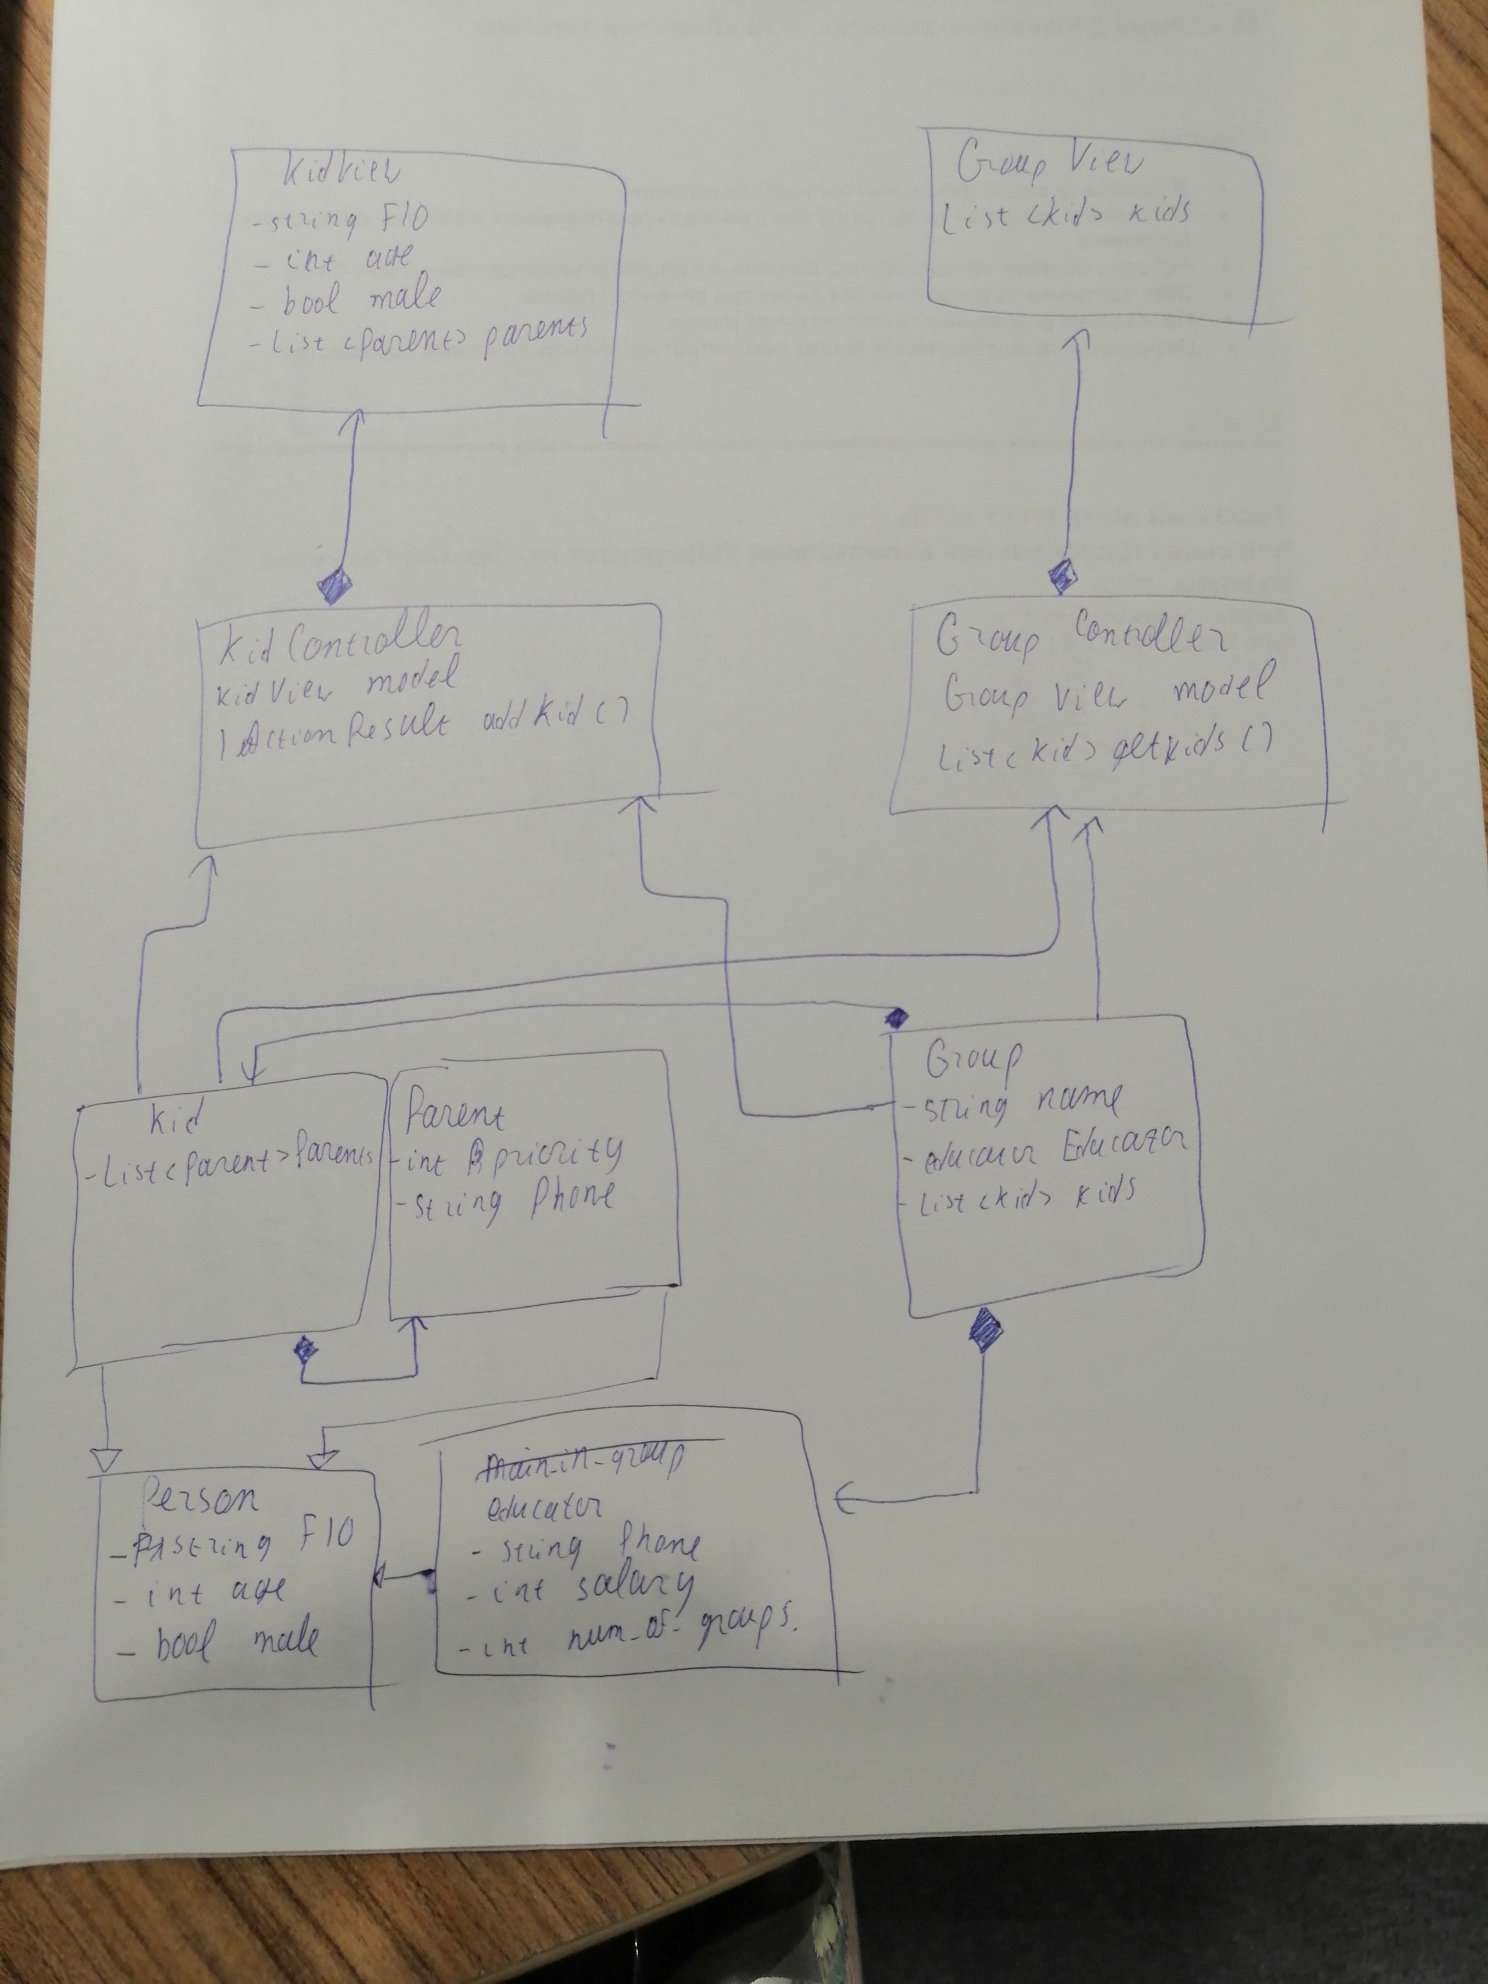 KidView
- string FIO
- int age
- bool male
- List <Parent> parents
Group View
List <Kid> kids
Kid Controller
KidView model
IActionResult addKid()
Group Controller
Group View model
List <Kid> getkids()
Kid
- List <Parent> Parents
Parent
- int priority
- string Phone
Group
- string name
- educator Educator
- List <Kid> kids
Person
- string FIO
- int age
- bool male
main_in_group
educator
- string Phone
- int salary
- int num_of_groups.